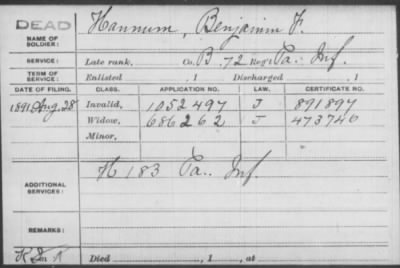 DEAD
NAME OF SOLDIER: Hannum, Benjamin F.
SERVICE: Late rank, Co. B. 72 Reg't Pa. Inf.
TERM OF SERVICE: Enlisted , 1 Discharged , 1
DATE OF FILING. CLASS. APPLICATION NO. LAW. CERTIFICATE NO.
1891 Aug. 28 Invalid, 1052497 J 891897
Widow, 686262 J 473746
Minor,
ADDITIONAL SERVICES: H 183 Pa. Inf.
REMARKS:
Died , 1 , at